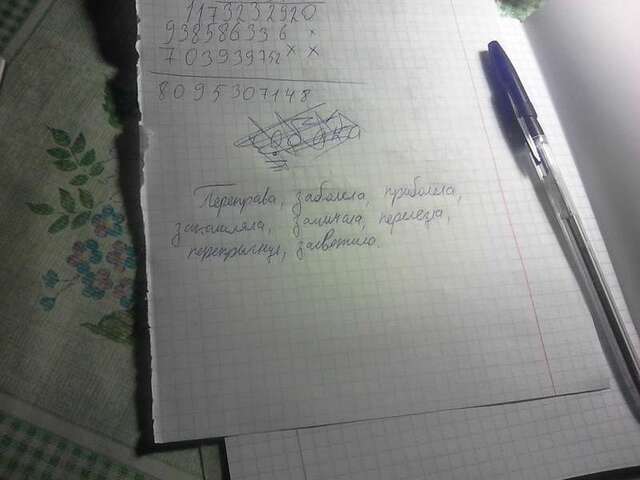 1173232920
938586336 ×
703939752 × ×
8095307148
Переправа, заболела, приболела,
закаляла, замичала, перелеза,
перепрыгнул, засветило.